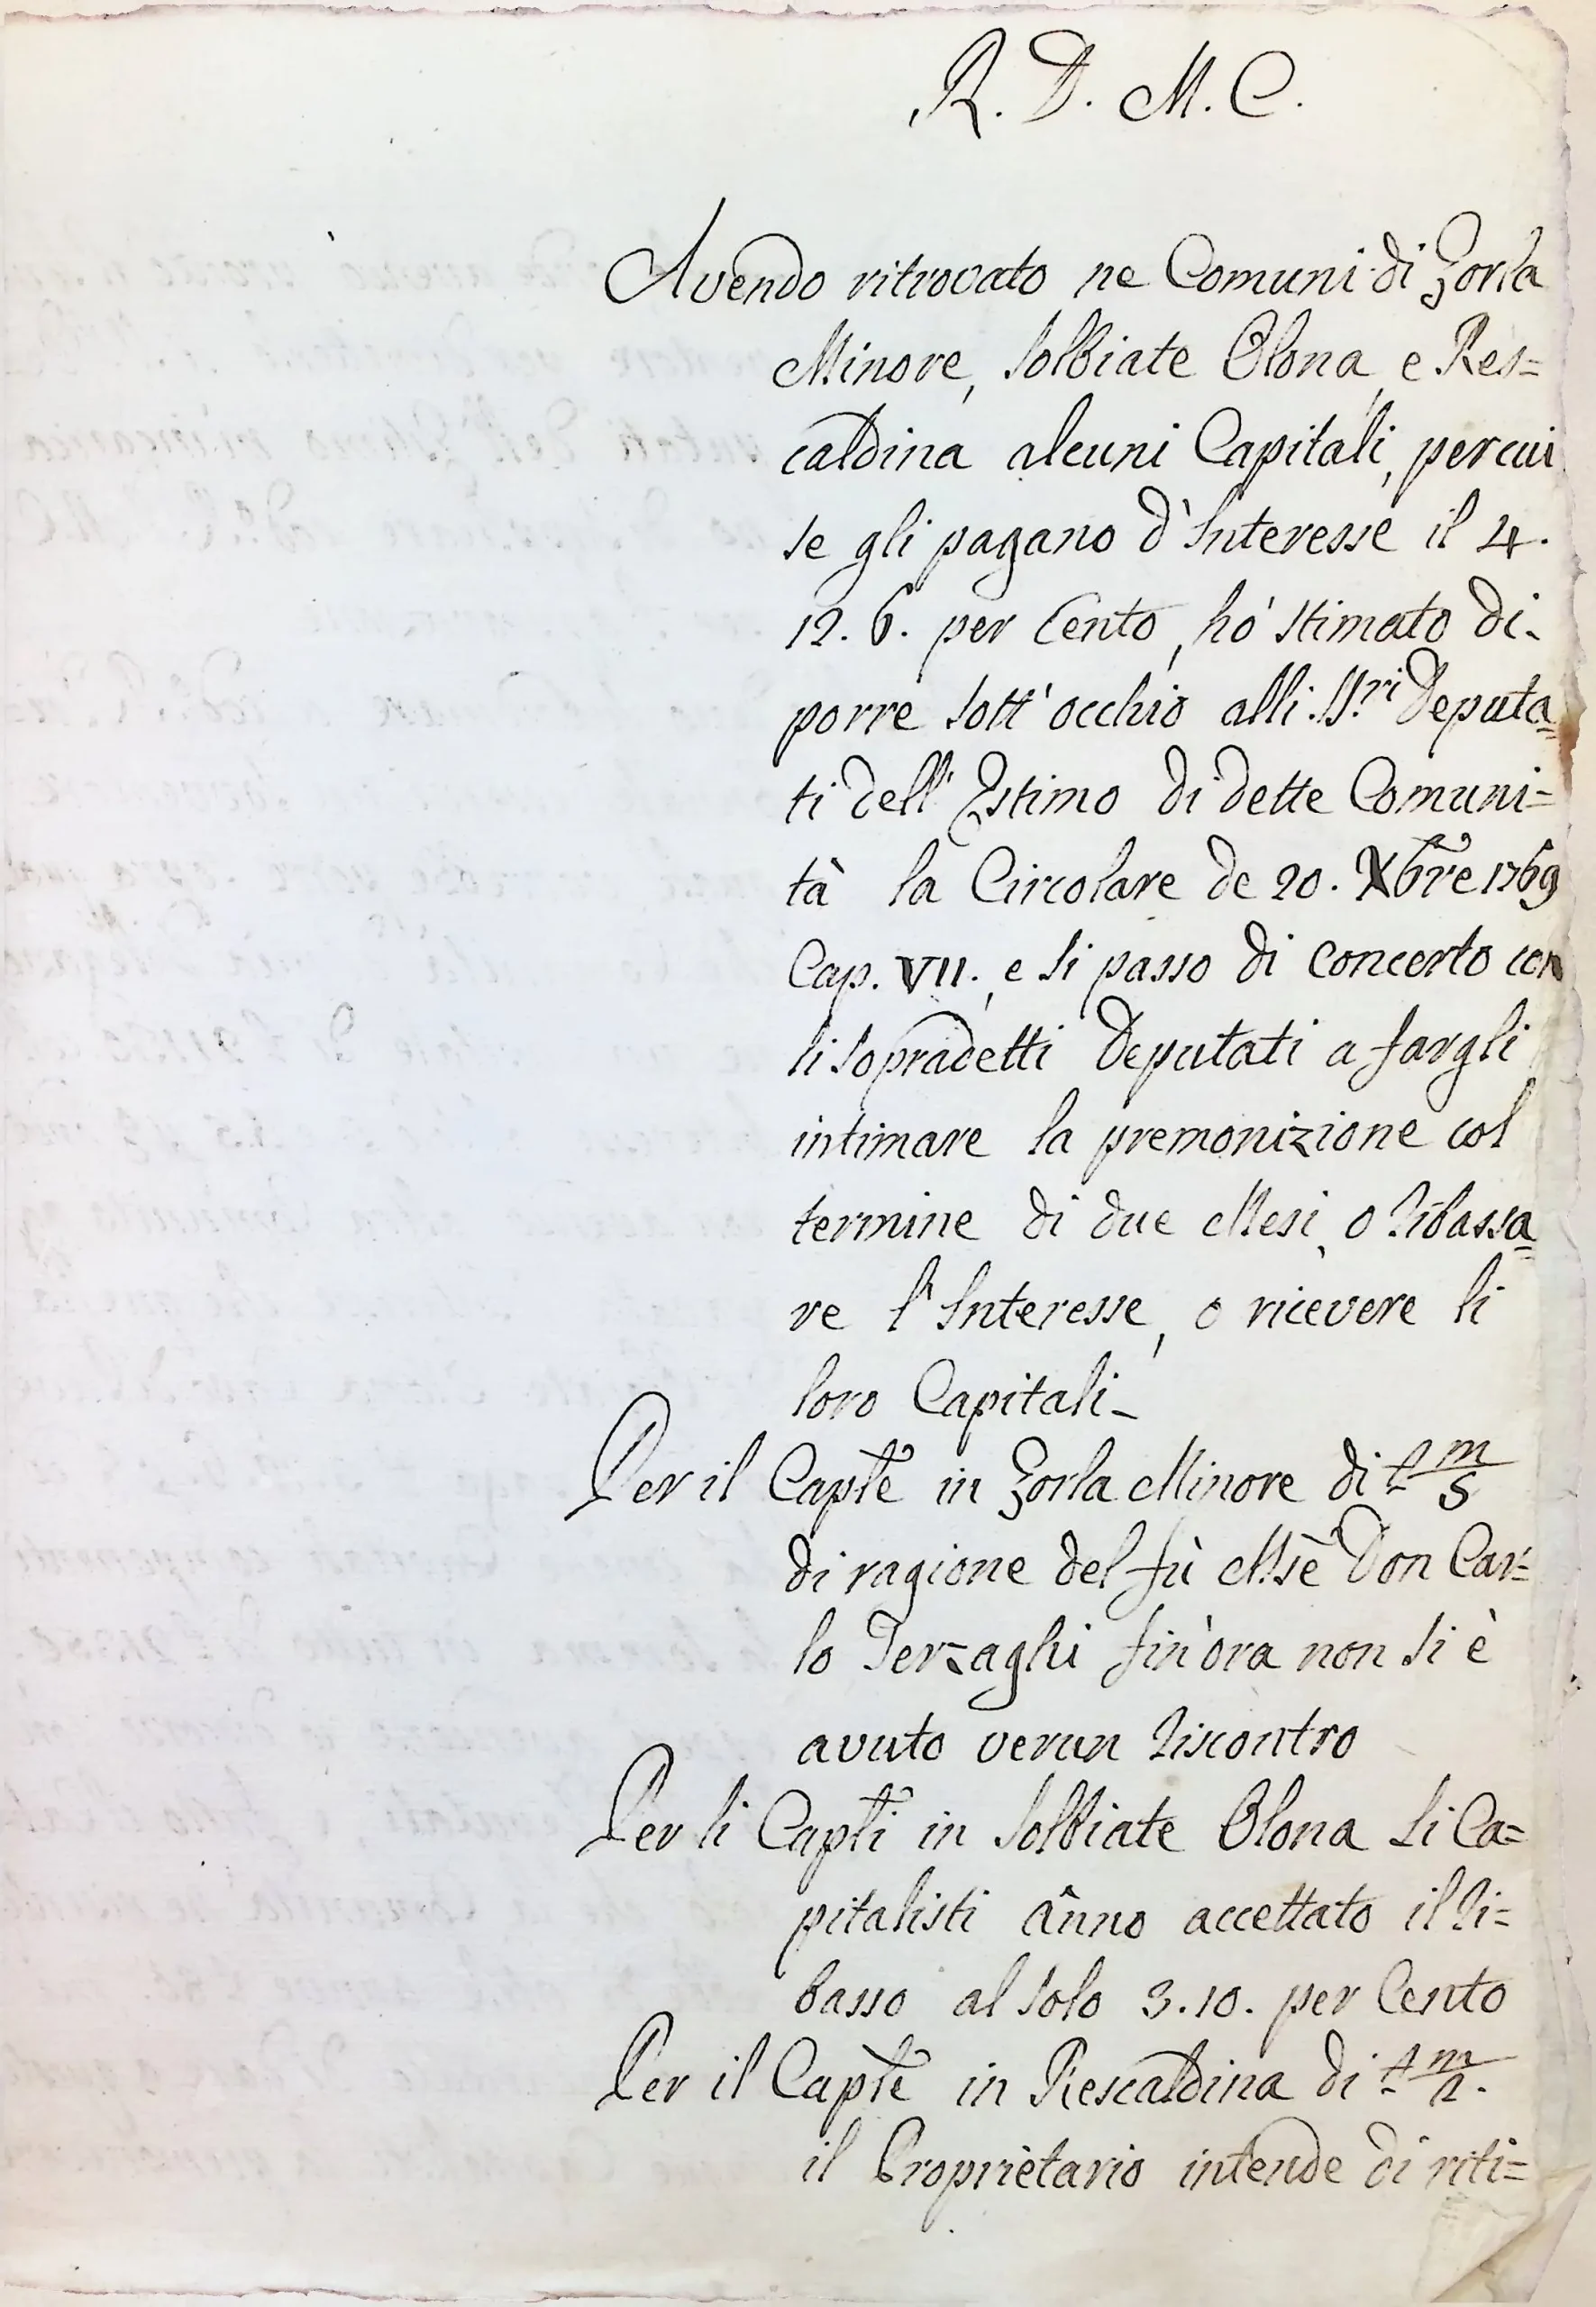 R. D. M. C.
Avendo ritrovato ne Comuni di Gorla
Minore, Solbiate Olona, e Res=
caldina alcuni Capitali, percui
se gli pagano d'Interesse il 4.
12. 6. per Cento, hò stimato di
porre sott'occhio alli SS.ri Deputa=
ti dell'Estimo di dette Comuni=
tà la Circolare de 20. Xbre 1769
Cap. VII., e si passo di concerto con
li sopradetti Deputati a fargli
intimare la premonizione col
termine di due Mesi, o Ribassa=
re l'Interesse, o ricevere li
loro Capitali-
Per il Caple in Gorla Minore di £ m/5
di ragione del fù Mse Don Car=
lo Terzaghi fin'ora non si è
avuto verun Riscontro
Per li Capli in Solbiate Olona li Ca=
pitalisti ânno accettato il Ri=
basso al solo 3. 10. per Cento
Per il Caple in Rescaldina di £ m/2.
il Proprietario intende di riti=